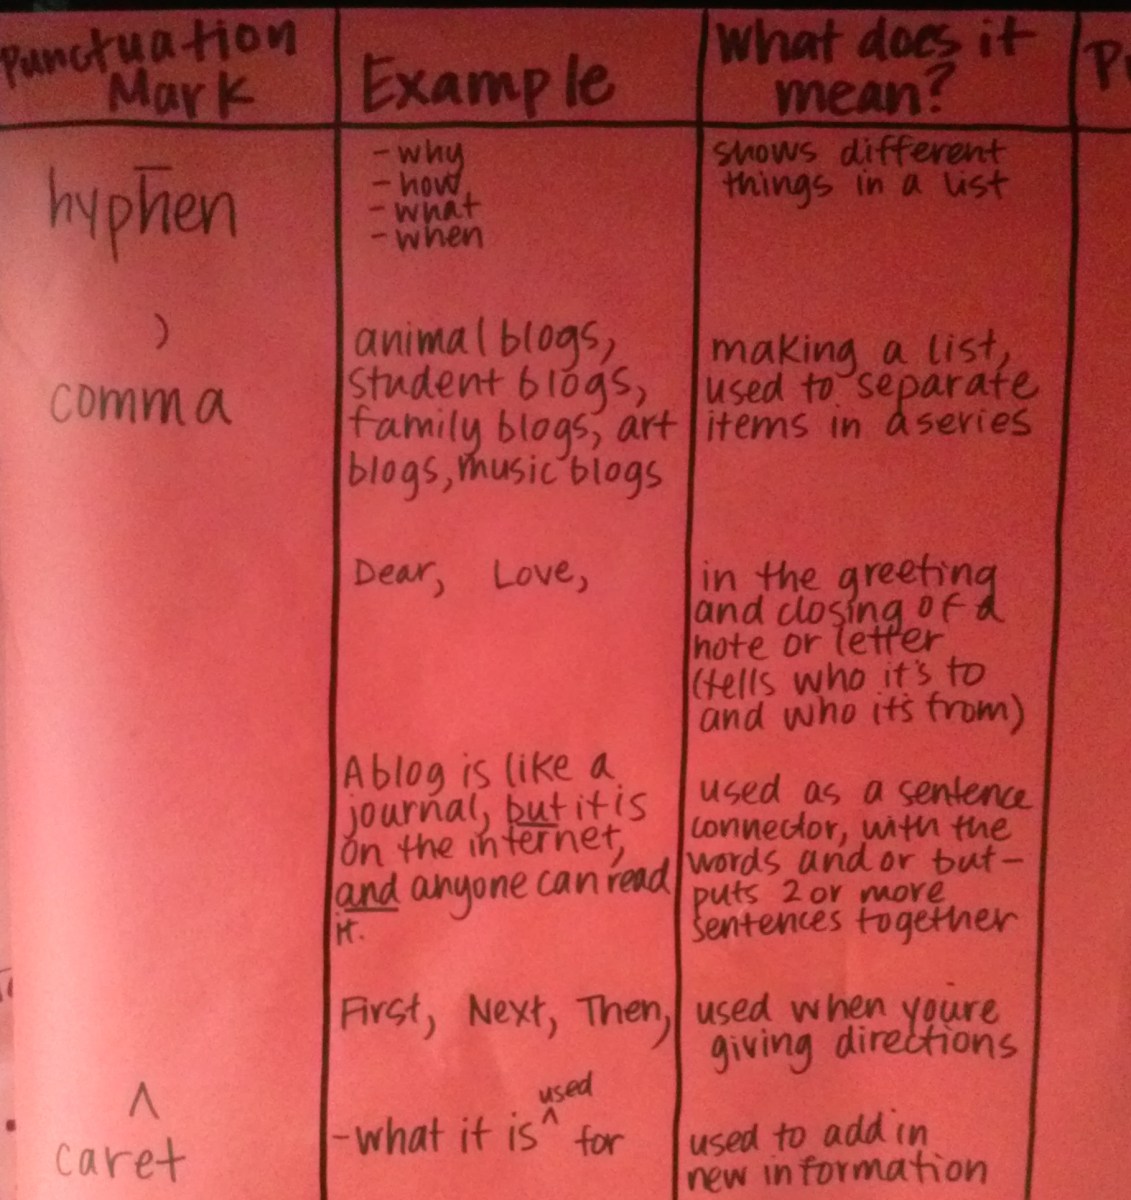 Punctuation Mark
Example
What does it mean?
—
hyphen
- why
- how
- what
- when
shows different
things in a list
,
comma
animal blogs,
student blogs,
family blogs, art
blogs, music blogs
making a list,
used to separate
items in a series
Dear, Love,
in the greeting
and closing of a
note or letter
(tells who it's to
and who it's from)
A blog is like a
journal, but it is
on the internet,
and anyone can read
it.
used as a sentence
connector, with the
words and or but -
puts 2 or more
sentences together
First, Next, Then,
used when youre
giving directions
^
caret
used
- what it is ^ for
used to add in
new information